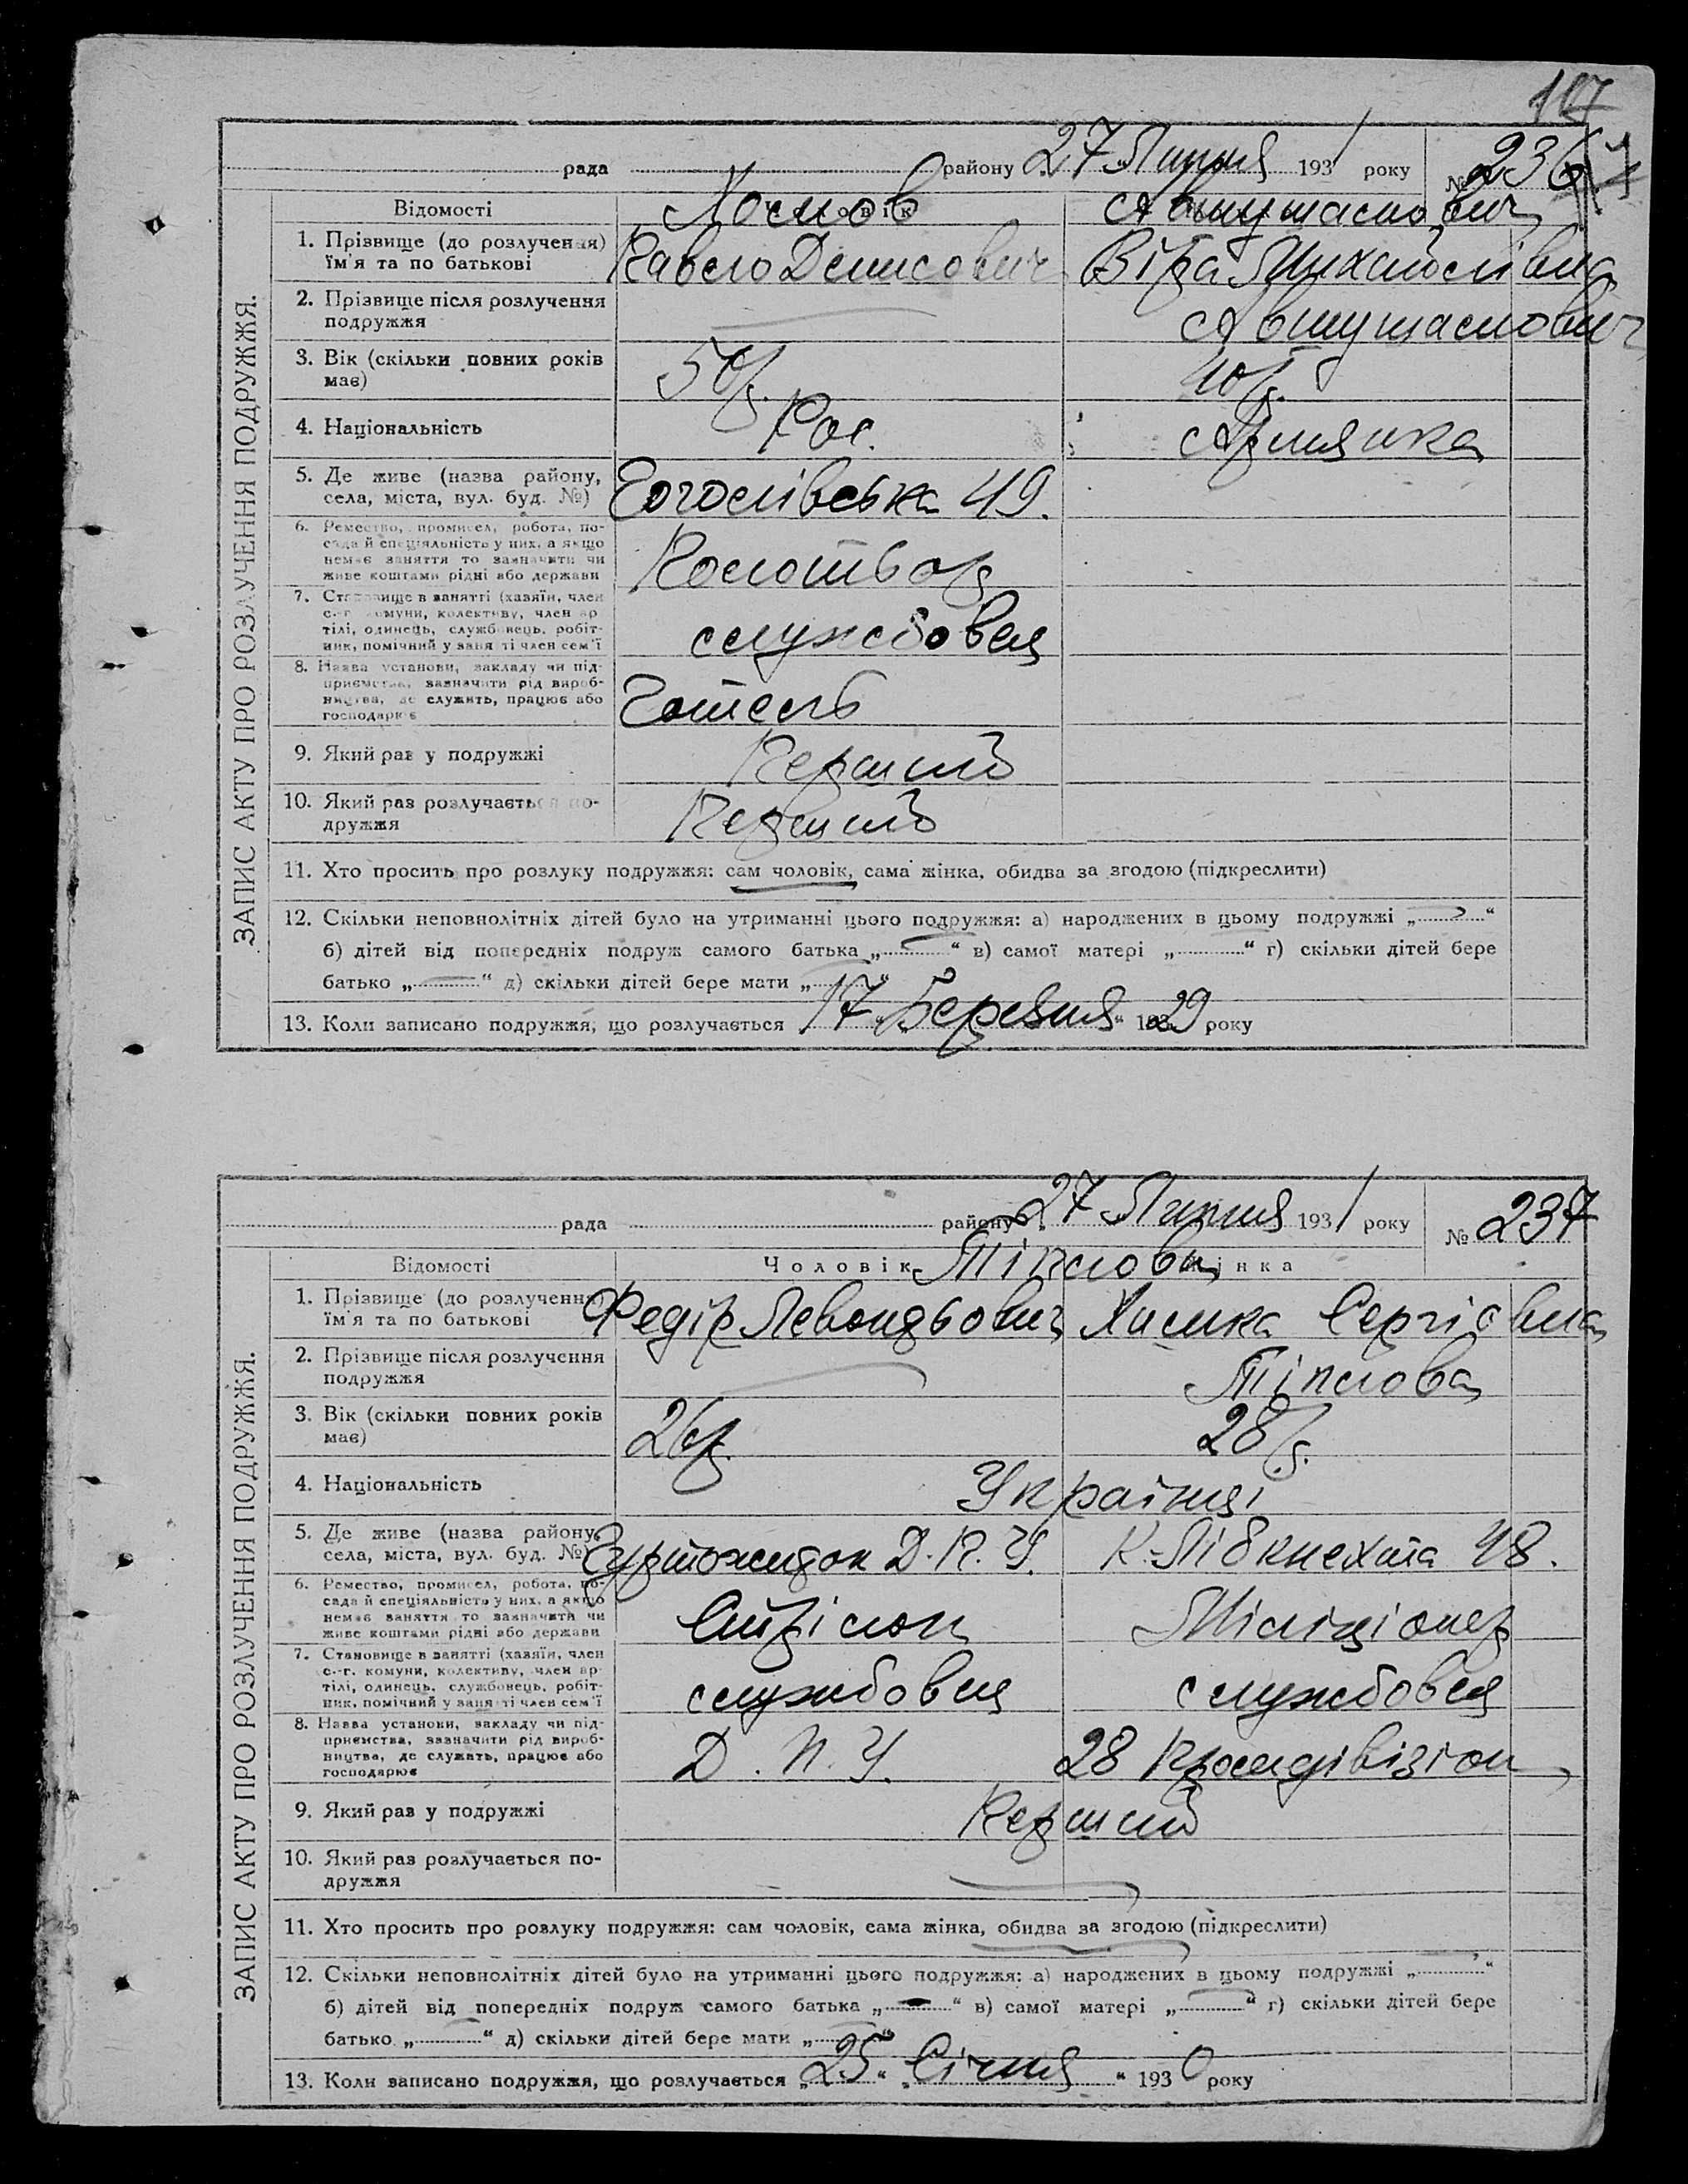 107
рада района 27 Липня 1931 року № 236
Відомості
1. Прізвище (до розлучення) Павло Денисович Віра Михайлівна
їм'я та по батькові
2. Прізвище після розлучення
подружжя
3. Вік (скільки повних років 50 р. 40 р.
має)
4. Національність Рос. Армянка
5. Де живе (назва району,
села, міста, вул. буд. №) 49.
6. Ремество, промисел, робота, по-
сада й спеціяльність у них, а якщо
немає заняття то зазначити чи
живе коштами рідні або держави
7. Становище в занятті (хазяїн, член
с.-г. комуни, колективу, член ар-
тілі, одинець, службовець, робіт- службовец
ник, помічний у занятті член сем'ї
8. Назва установи, закладу чи під-
приємства, зазначити рід вироб-
ництва, де служить, працює або Готель
господарює
9. Який раз у подружжі Перший
10. Який раз розлучається по- Перший
дружжя
11. Хто просить про розлуку подружжя: сам чоловік, сама жінка, обидва за згодою (підкреслити)
12. Скільки неповнолітніх дітей було на утриманні цього подружжя: а) народжених в цьому подружжі „ “
б) дітей від попередніх подруж самого батька „ “ в) самої матері „ “ г) скільки дітей бере
батько „ “ д) скільки дітей бере мати „ “
13. Коли записано подружжя, що розлучається „17“ „Березня“ 1929 року
ЗАПИС АКТУ ПРО РОЗЛУЧЕННЯ ПОДРУЖЖЯ.
рада району 27 Липня 1931 року № 237
Відомості Чоловік Жінка
1. Прізвище (до розлучення) Федір Химка Сергієвна
їм'я та по батькові
2. Прізвище після розлучення Тіплова
подружжя
3. Вік (скільки повних років 26 р. 28 р.
має)
4. Національність Українці
5. Де живе (назва району,
села, міста, вул. буд. №) Гуртожиток Д.П.У. К. Лібкнехта 48.
6. Ремество, промисел, робота, по-
сада й спеціяльність у них, а якщо
немає заняття то зазначити чи Стрілок Міліціонер
живе коштами рідні або держави
7. Становище в занятті (хазяїн, член
с.-г. комуни, колективу, член ар-
тілі, одинець, службовець, робіт- службовец службовец
ник, помічний у занятті член сем'ї
8. Назва установи, закладу чи під-
приємства, зазначити рід вироб- Д.П.У. 28
ництва, де служать, працює або
господарює
9. Який раз у подружжі Перший
10. Який раз розлучається по-
дружжя
11. Хто просить про розлуку подружжя: сам чоловік, сама жінка, обидва за згодою (підкреслити)
12. Скільки неповнолітніх дітей було на утриманні цього подружжя: а) народжених в цьому подружжі „ “
б) дітей від попередніх подруж самого батька „ “ в) самої матері „ “ г) скільки дітей бере
батько „ “ д) скільки дітей бере мати „ “
13. Коли записано подружжя, що розлучається „25“ „Січня“ 1930 року
ЗАПИС АКТУ ПРО РОЗЛУЧЕННЯ ПОДРУЖЖЯ.